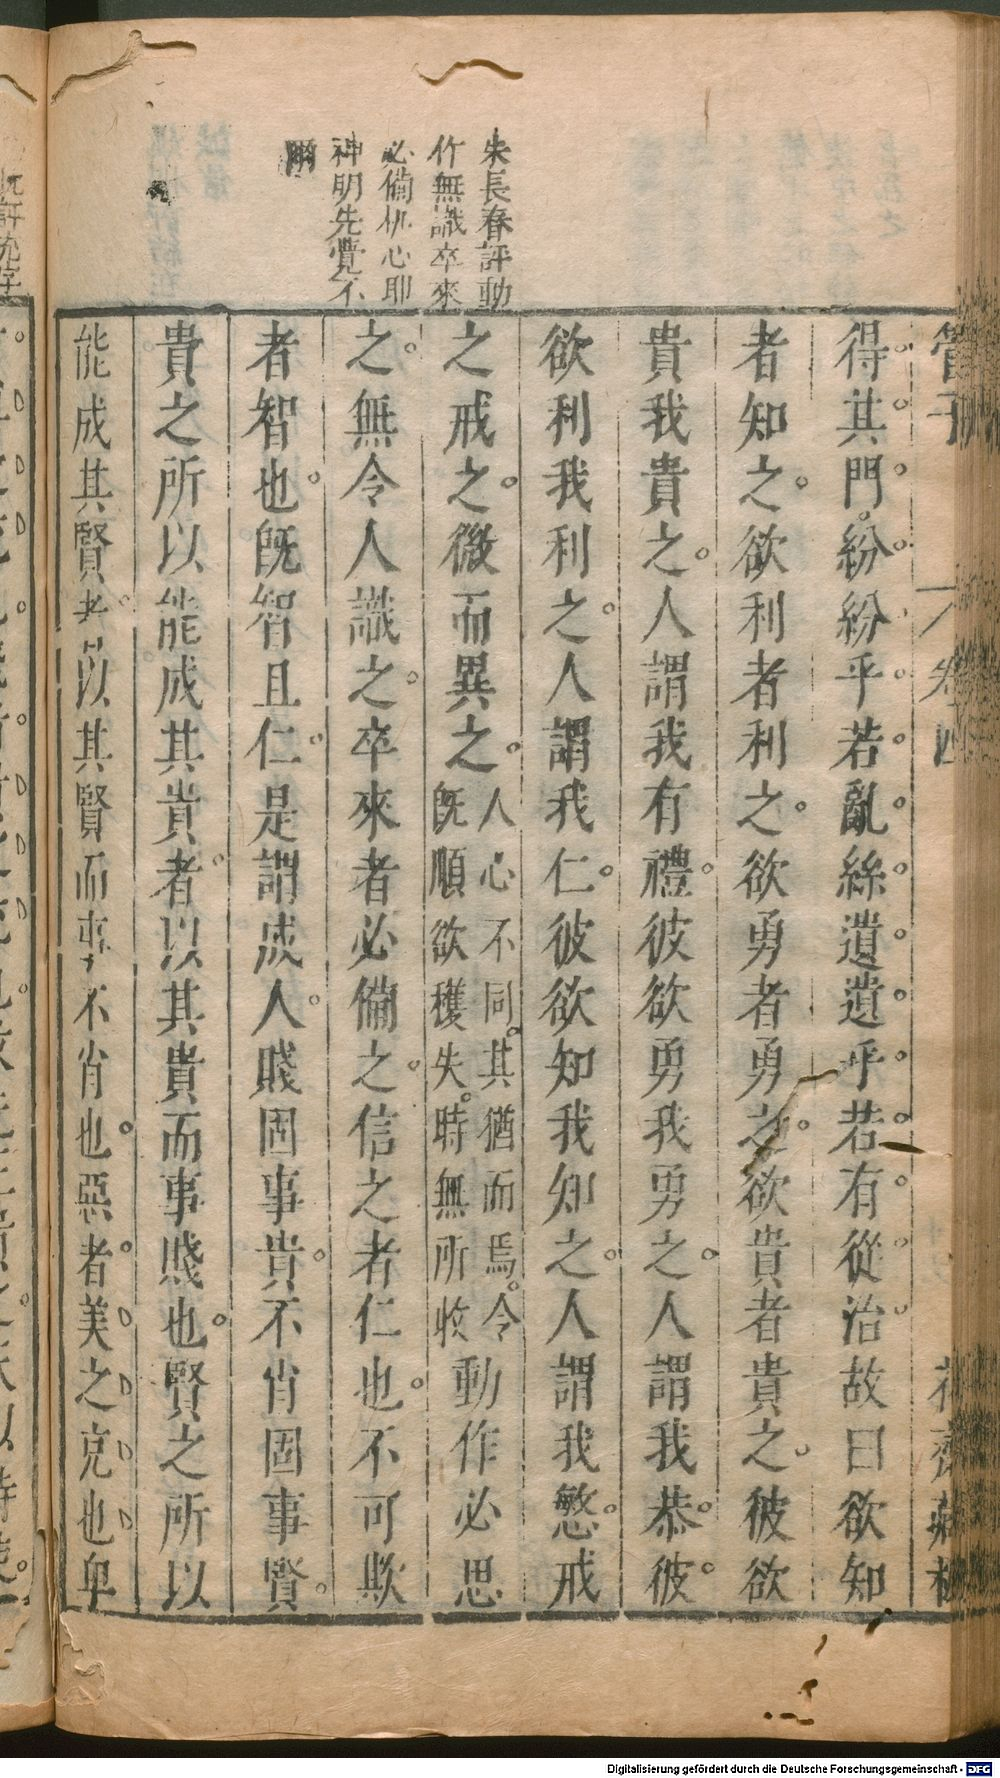 朱長春評動
作無識卒來
必備机心耶
神明先覺不
管子
卷四
花齋藏板
得其門紛紛乎若亂絲遺遺乎若有從治故曰欲知
者知之欲利者利之欲勇者勇之欲貴者貴之彼欲
貴我貴之人謂我有禮彼欲勇我勇之人謂我恭彼
欲利我利之人謂我仁彼欲知我知之人謂我慜戒
之戒之微而異之人心不同其猶而焉令既順欲穫失時無所收動作必思
之無令人識之卒來者必備之信之者仁也不可欺
者智也既智且仁是謂成人賤固事貴不肖固事賢
貴之所以能成其貴者以其貴而事賤也賢之所以
能成其賢者以其賢而事不肖也惡者美之充也卑
Digitalisierung gefördert durch die Deutsche Forschungsgemeinschaft - DFG